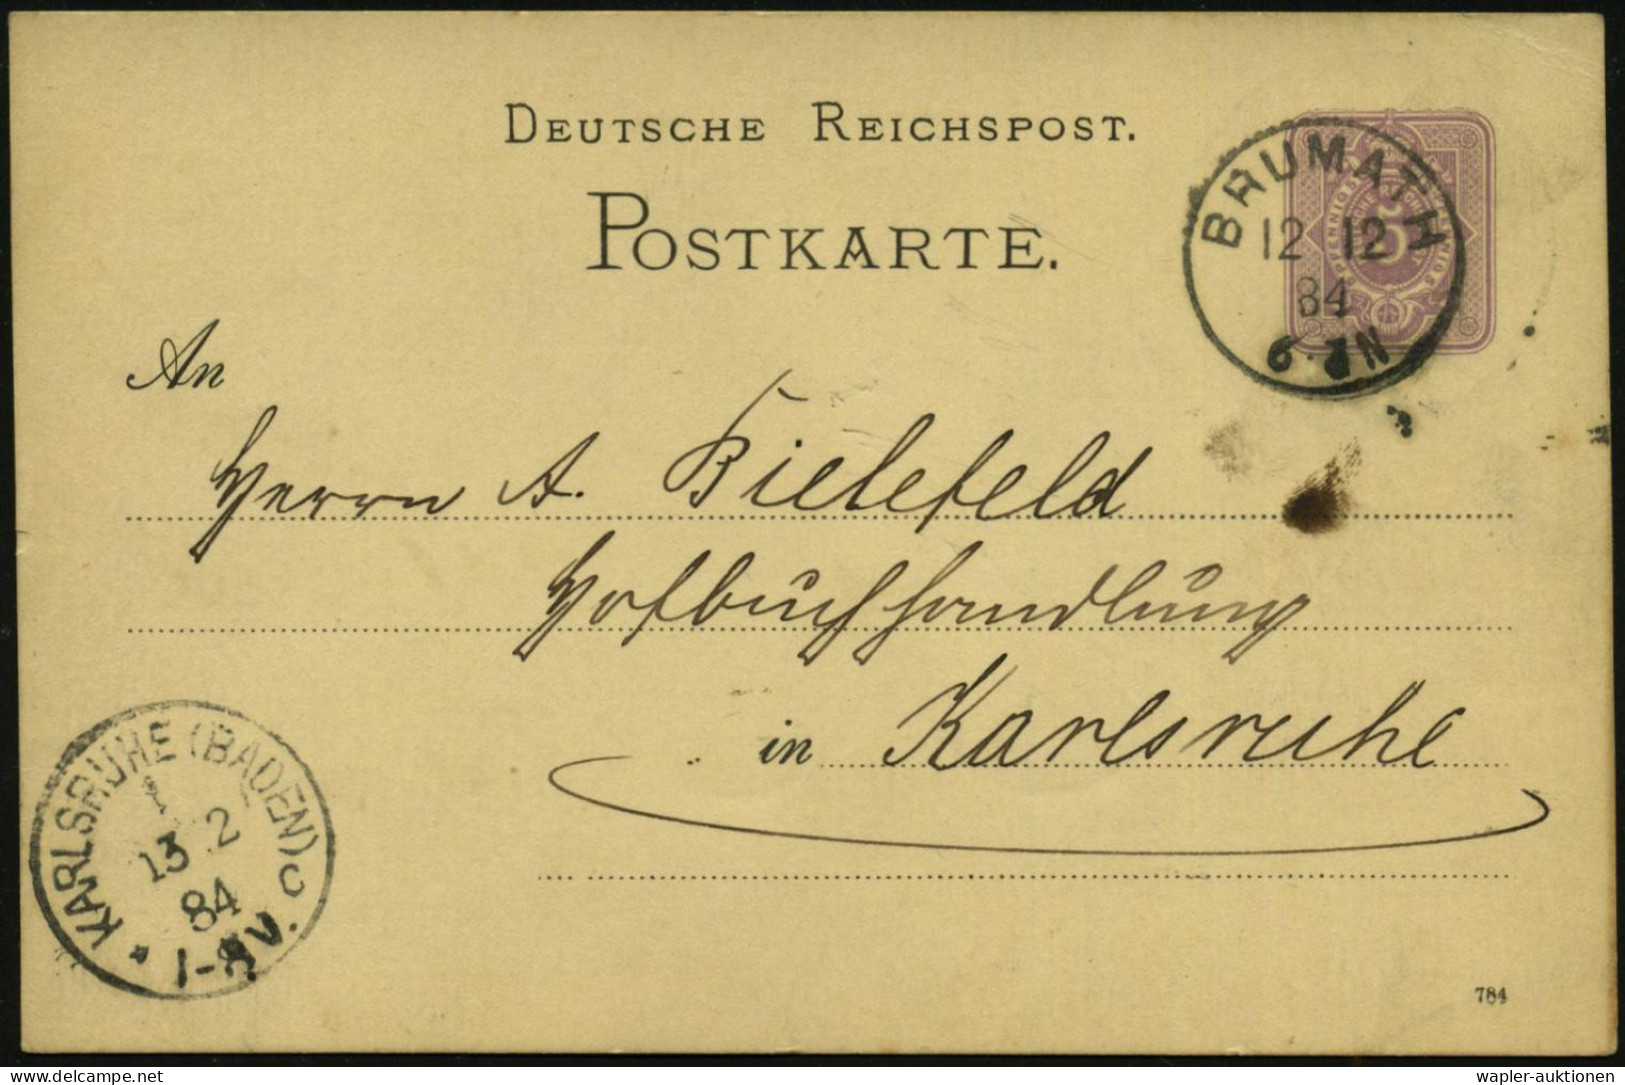 DEUTSCHE REICHSPOST.
POSTKARTE.
BRUMATH
12 12
84
6-7N
5
An
Herrn A. Bielefeld
Hofbuchhandlung
in Karlsruhe
KARLSRUHE (BADEN) c
13 2
84
V.
784
hmp.de
wapler-auktionen